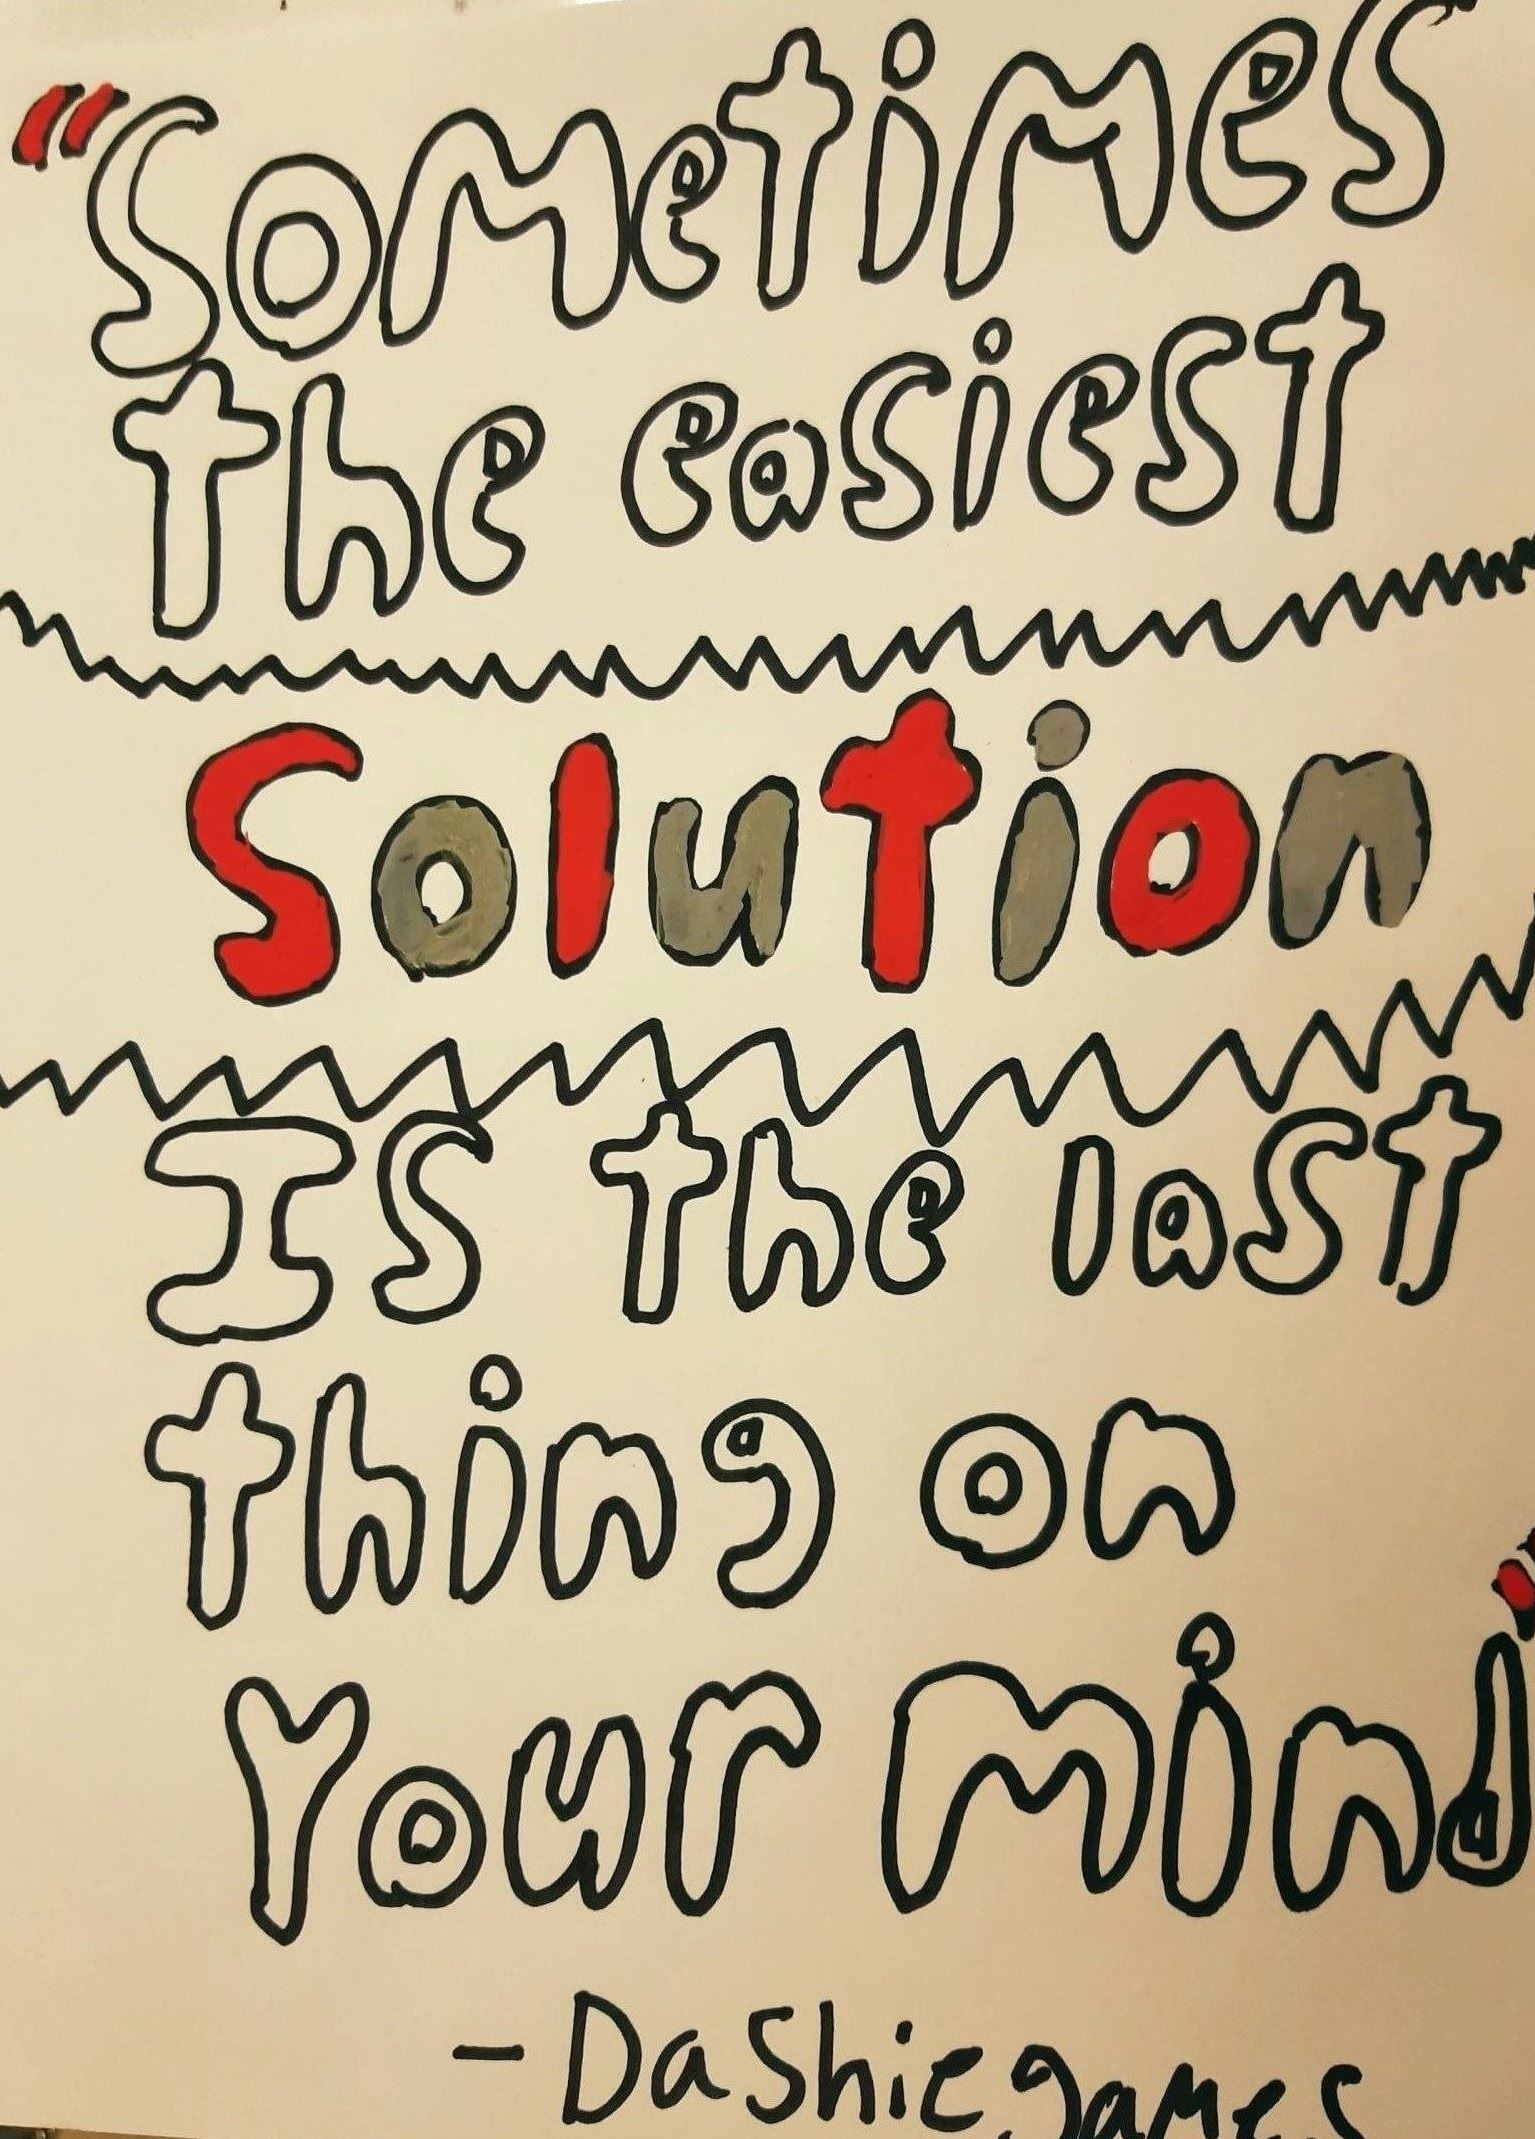 "Sometimes
the easiest
Solution
Is the last
thing on
Your mind"
- Dashiegames